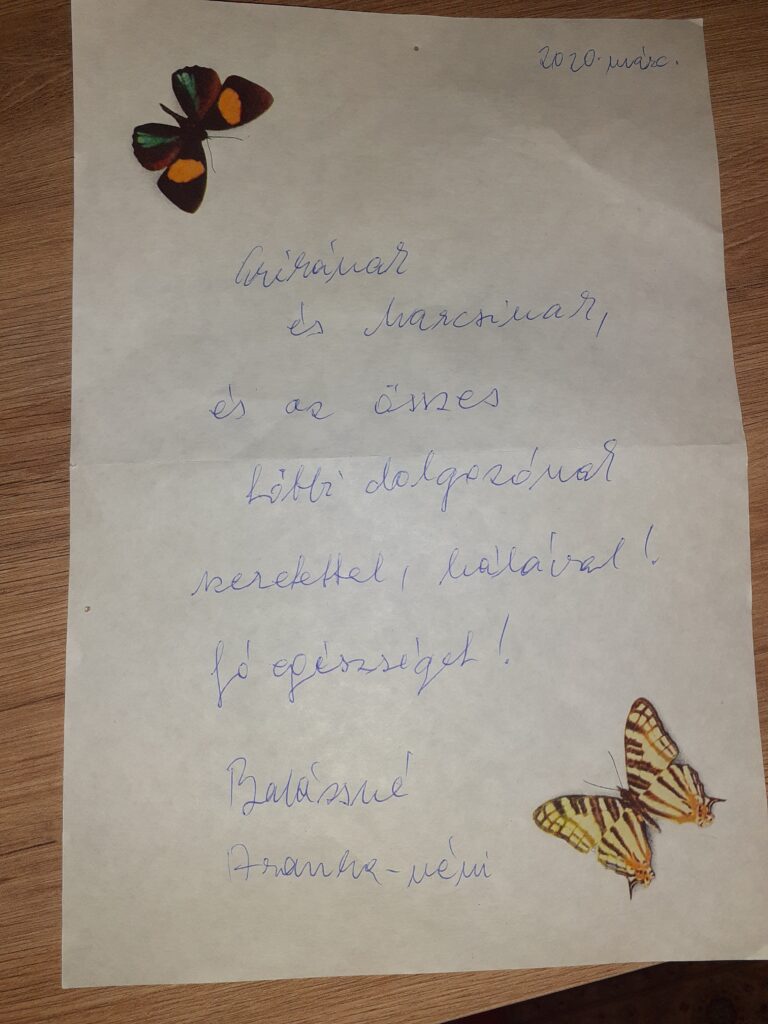 2020. márc.
Krisának
és Marcsinak,
és az összes
többi dolgozónak
szeretettel, hálával!
Jó egészséget!
Balássné
Aranka-néni